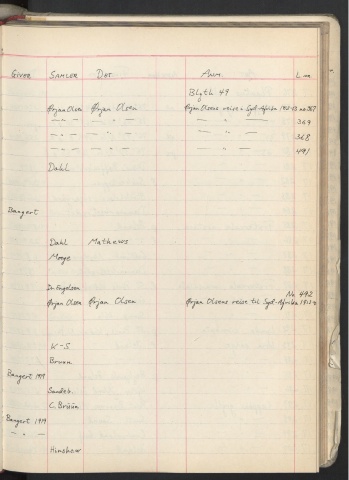 GIVER SAMLER DET. ANM. L. nr.
Blyth 49
Ørjan Olsen Ørjan Olsen Ørjan Olsens reise i Syd-Afrika 1912-13 no 367
— " — — " — — " — 369
— " — — " — — " — 368
— " — — " — — " — 491
Dahl
Bangert
Dahl Mathews
Moége
Dr Engelsen No 492
Ørjan Olsen Ørjan Olsen Ørjan Olsens reise til Syd-Afrika 1912-13
K-S.
Bruun
Bangert 1919
Sundeb.
C. Brüün
Bangert 1919
— " —
Hinshow